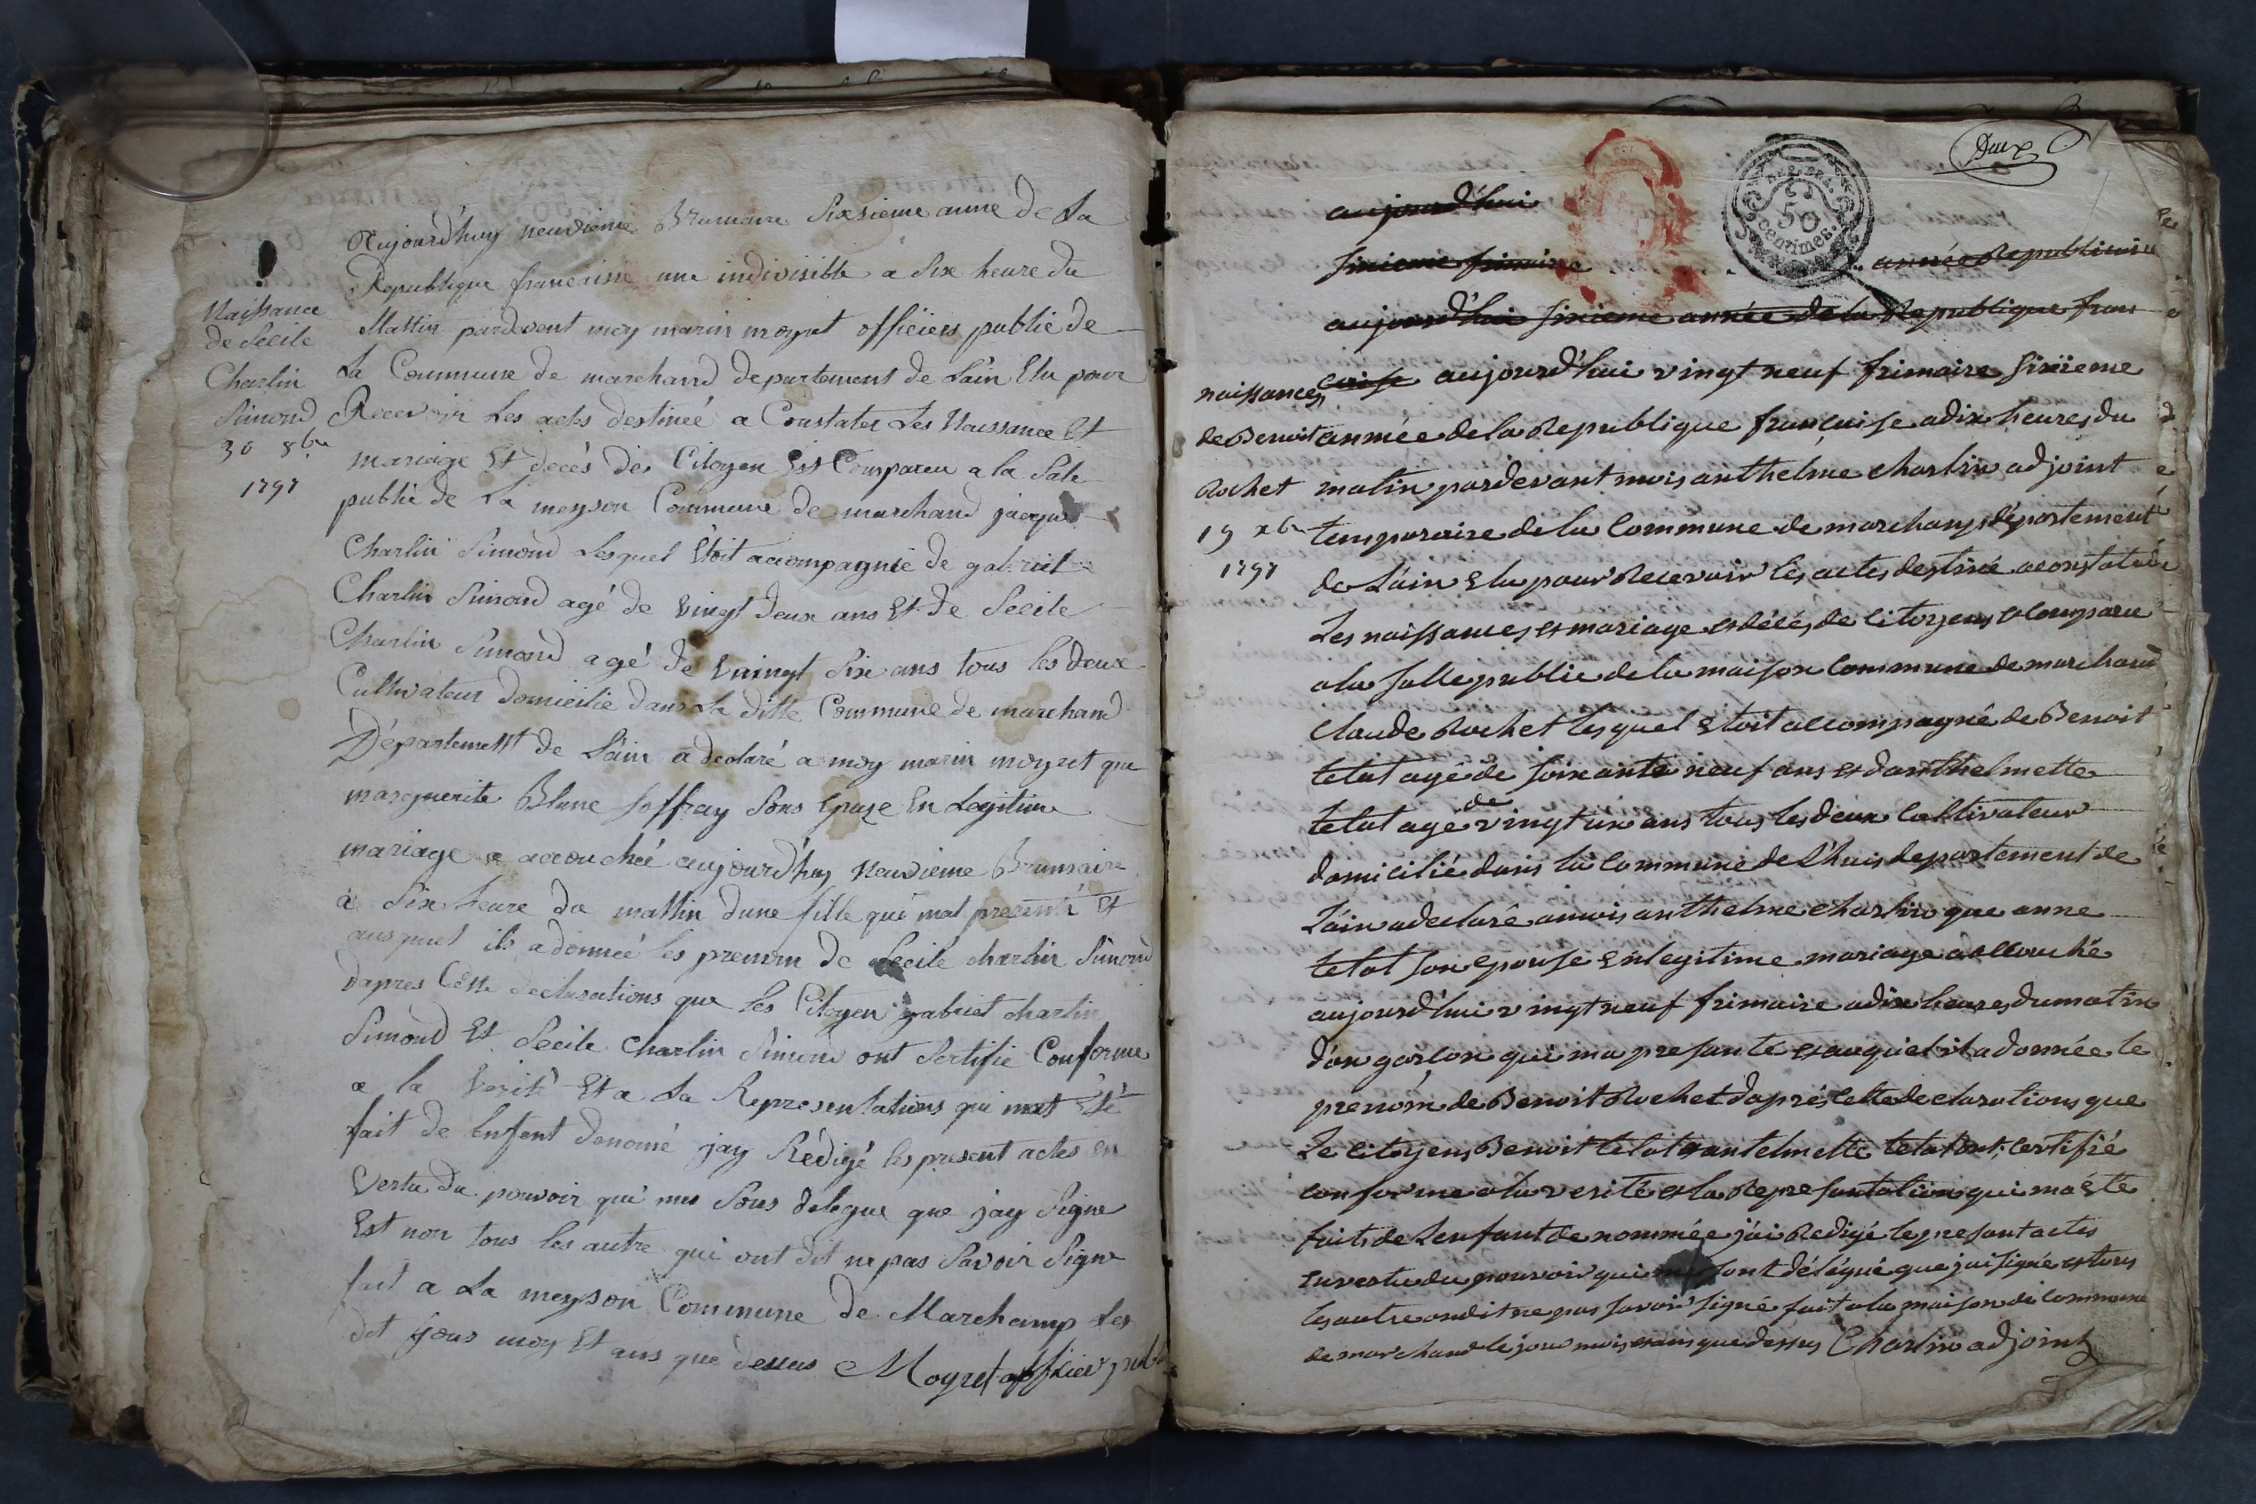 Naissance
de Secile
Charlin
Simond
30 8bre
1797
Aujourd'huy neuvieme Brumaire Sixsieme anne de La
Republique francaisse une indivisible a Six heure du
Mattin pardevent moy marin moyret officiers public de
La Commune de marchand departement de Lain Elu pour
Recevoir Les actes destineé a Constater Les Naissance Et
mariage Et decès des Citoyen Est Comparru a la Sale
public de La meyson Commune de marchand jacque
Charlin Simond Lesquel Etoit accompagnié de gabriel
Charlin Simond agé de vingt deux ans Et de Secile
Charlin Simond agé de vaingt Six ans tous les deux
Cultivateur domicilié dans La ditte Commune de marchand
Département de Lain a declaré a moy marin moyret que
marguerite Blune joffray Sons Epuze En Legitime
mariage a accouchéé aujourd'huy Neuvieme Brumaire
à Six heure du mattin dune fille qui mat presenté Et
ausquel ils a donneé les prenom de Secile charlin Simond
dapres Cette declarations que les Citoyen gabriel charlin
Simond Et Secile Charlin Simond ont Sertifie Conforme
a la verité Et a La Representations qui mat Eté
fait de lenfent denomé jay Rédigé les present actes en
Vertu du pouvoir qui mes Sons delegue que jay Signe
Est non tous les autre qui ont dit ne pas Savoir Signe
fait a La meyson Commune de Marchamp Les
dit jour moy Et ans que dessus Moyret officier publ
Deux
REP. FRA.
50
centimes.
aujourd'hui
sixieme frimaire année Republicaine
aujourd'hui sixieme année de la Republique fran
naissances
de Benoit
Rochet
19 xbre
1797
aujourd'hui vingt neuf frimaire sixieme
anmée de la Republique françaisse a dix heures du
matin pardevant mois anthelme charlin adjoint
temporaire de la Commune de marchamp département
de Lain Elu pour Recevoir les actes destiné a constaté de
Les naissances et mariage et décés de citoyens et Comparu
a la salle public de la maison Commune de marchand
Claude Rochet lesquel Etoit accompagné de Benoit
tetat agé de soixante neuf ans et danthelmette
tetat agé de vingt un ans tous les deux Cultivateur
domicilié dans la Commune de Lhuis departement de
Lain a declaré a mois anthelme charlin que anne
tetat son epouse en legitime mariage a accouché
aujourd'hui vingt neuf frimaire a dix heures du matin
d'on garson qui ma presanté et auquel il a donnée le
prenom de Benoit Rochet d'aprés cette declarations que
Le citoyens Benoit tetat antelmette tetat ont certifié
conforme a la verité et la Representation qui ma été
faits de Lenfant denommée j'ai Redigé le presant actes
en vertu du pouvoir qui sont délégué que j'ai signé et tous
les autre on dit ne pas savoir signé fait a la maison de Commune
de marchand le jour mois et ans que dessus Charlin adjoint